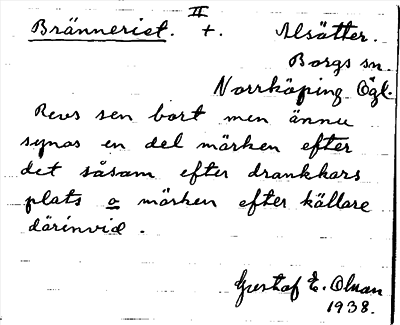 II
Bränneriet. +. Alsätter.
Borgs sn.
Norrköping Ögl.
Revs sen bort men ännu
synas en del märken efter
det såsom efter drankkars
plats o märken efter källare
därinvid.
Gustaf E. Olman
1938.